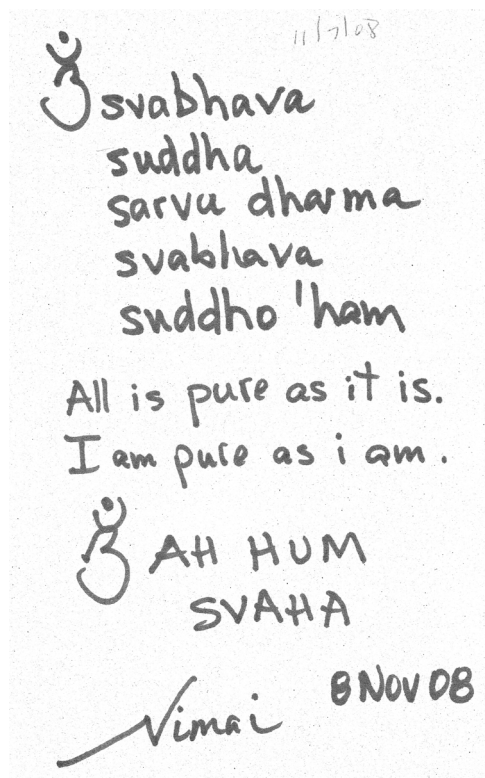 11/7/08
ॐ svabhava
suddha
sarva dharma
svabhava
suddho 'ham
All is pure as it is.
I am pure as i am.
ॐ AH HUM
SVAHA
8 NOV 08
Nimai